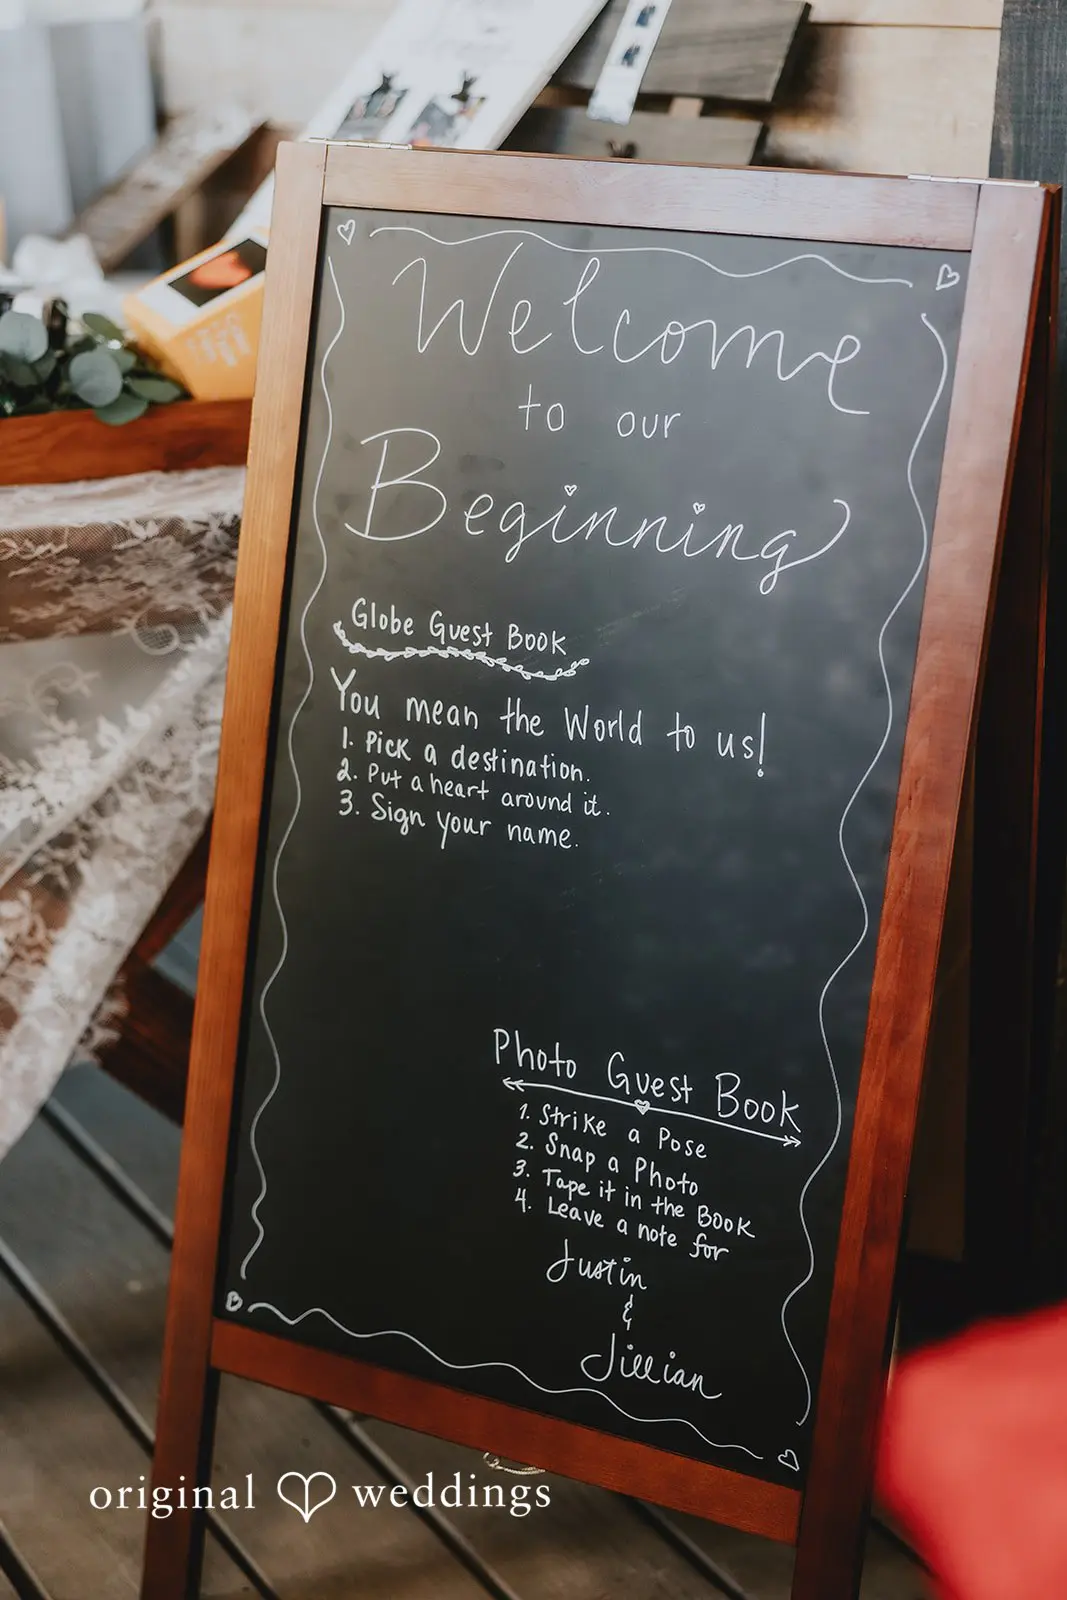 Welcome
to our
Beginning
Globe Guest Book
You mean the World to us!
1. Pick a destination.
2. Put a heart around it.
3. Sign your name.
Photo Guest Book
1. Strike a Pose
2. Snap a Photo
3. Tape it in the Book
4. Leave a note for
Justin
&
Jillian
original weddings